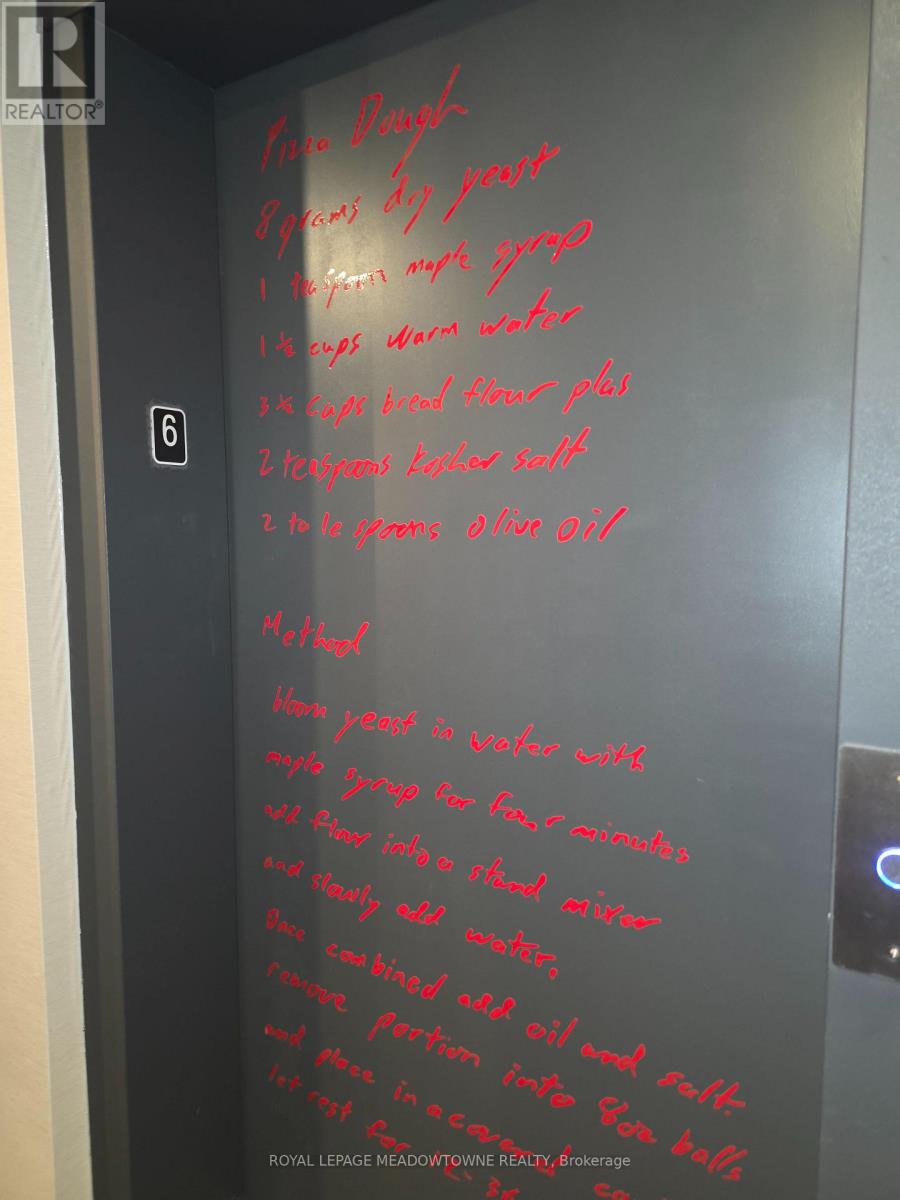 REALTOR®
Pizza Dough
8 grams dry yeast
1 teaspoon maple syrup
1 ½ cups warm water
3 ½ cups bread flour plus
2 teaspoons kosher salt
2 ta le spoons olive oil
6
Method
bloom yeast in water with
maple syrup for four minutes
add flour into a stand mixer
and slowly add water.
Once combined add oil and salt.
remove portion into 8oz balls
and place in a covered
let rest for
ROYAL LEPAGE MEADOWTOWNE REALTY, Brokerage